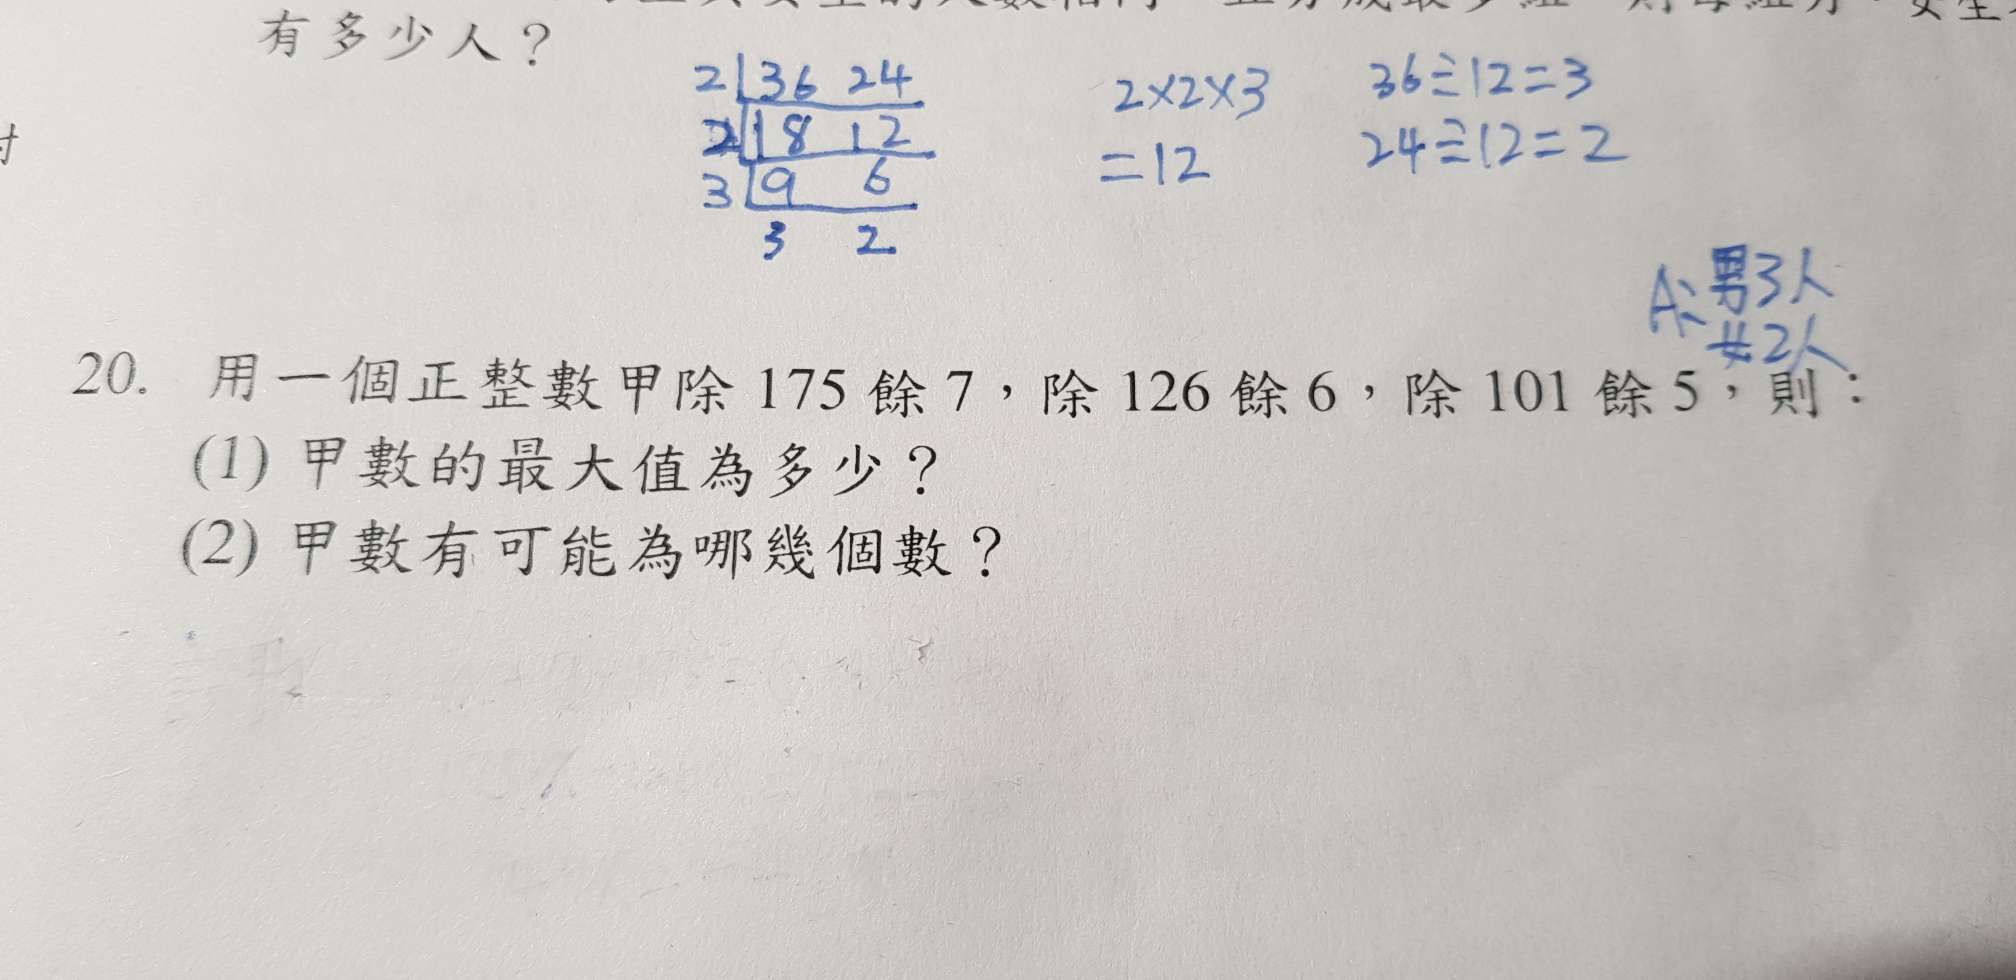 有多少人？
2 36 24
2 18 12
3 9 6
3 2
2×2×3
=12
36÷12=3
24÷12=2
A: 男3人
女2人
20. 用一個正整數甲除 175 餘 7，除 126 餘 6，除 101 餘 5，則：
(1) 甲數的最大值為多少？
(2) 甲數有可能為哪幾個數？